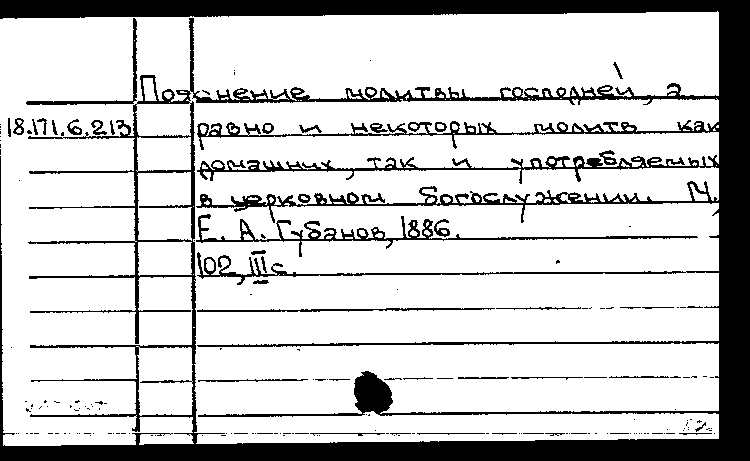 Пояснение молитвы господней, а
18.171.6.213 равно и некоторых молитв как
домашних, так и употребляемых
в церковном богослужении. М.,
Е. А. Губанов, 1886.
102, III с.